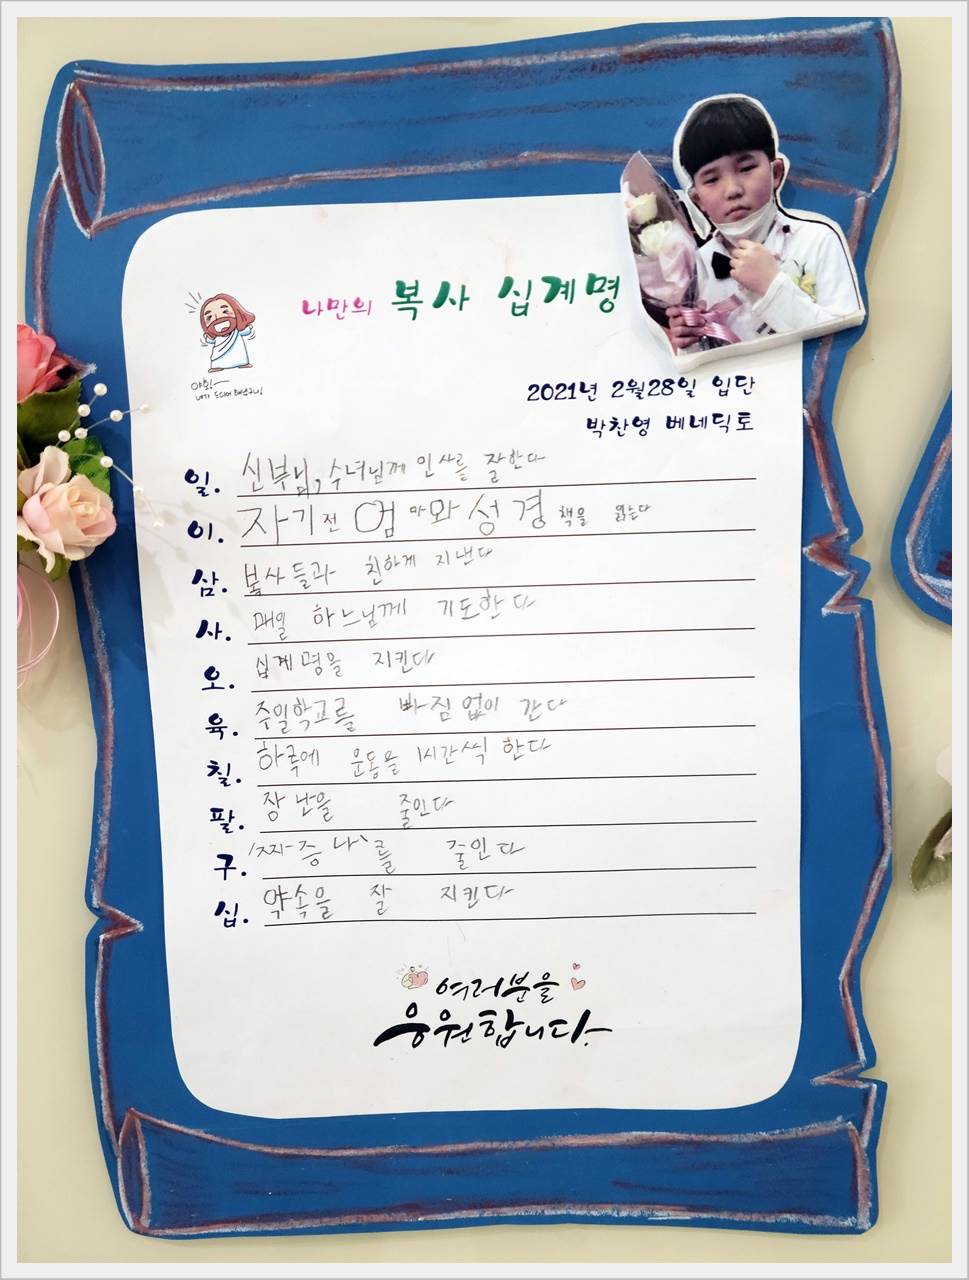 나만의 복사 십계명
야호!
네가 드디어 해냈구나!
2021년 2월28일 입단
박찬영 베네딕토
일. 신부님, 수녀님께 인사를 잘한다
이. 자기전 엄마와 성경책을 읽는다
삼. 복사들과 친하게 지낸다
사. 매일 하느님께 기도한다
오. 십계명을 지킨다
육. 주일학교를 빠짐없이 간다
칠. 하루에 운동을 1시간씩 한다
팔. 장난을 줄인다
구. 짜증나를 줄인다
십. 약속을 잘 지킨다
여러분을
응원합니다.